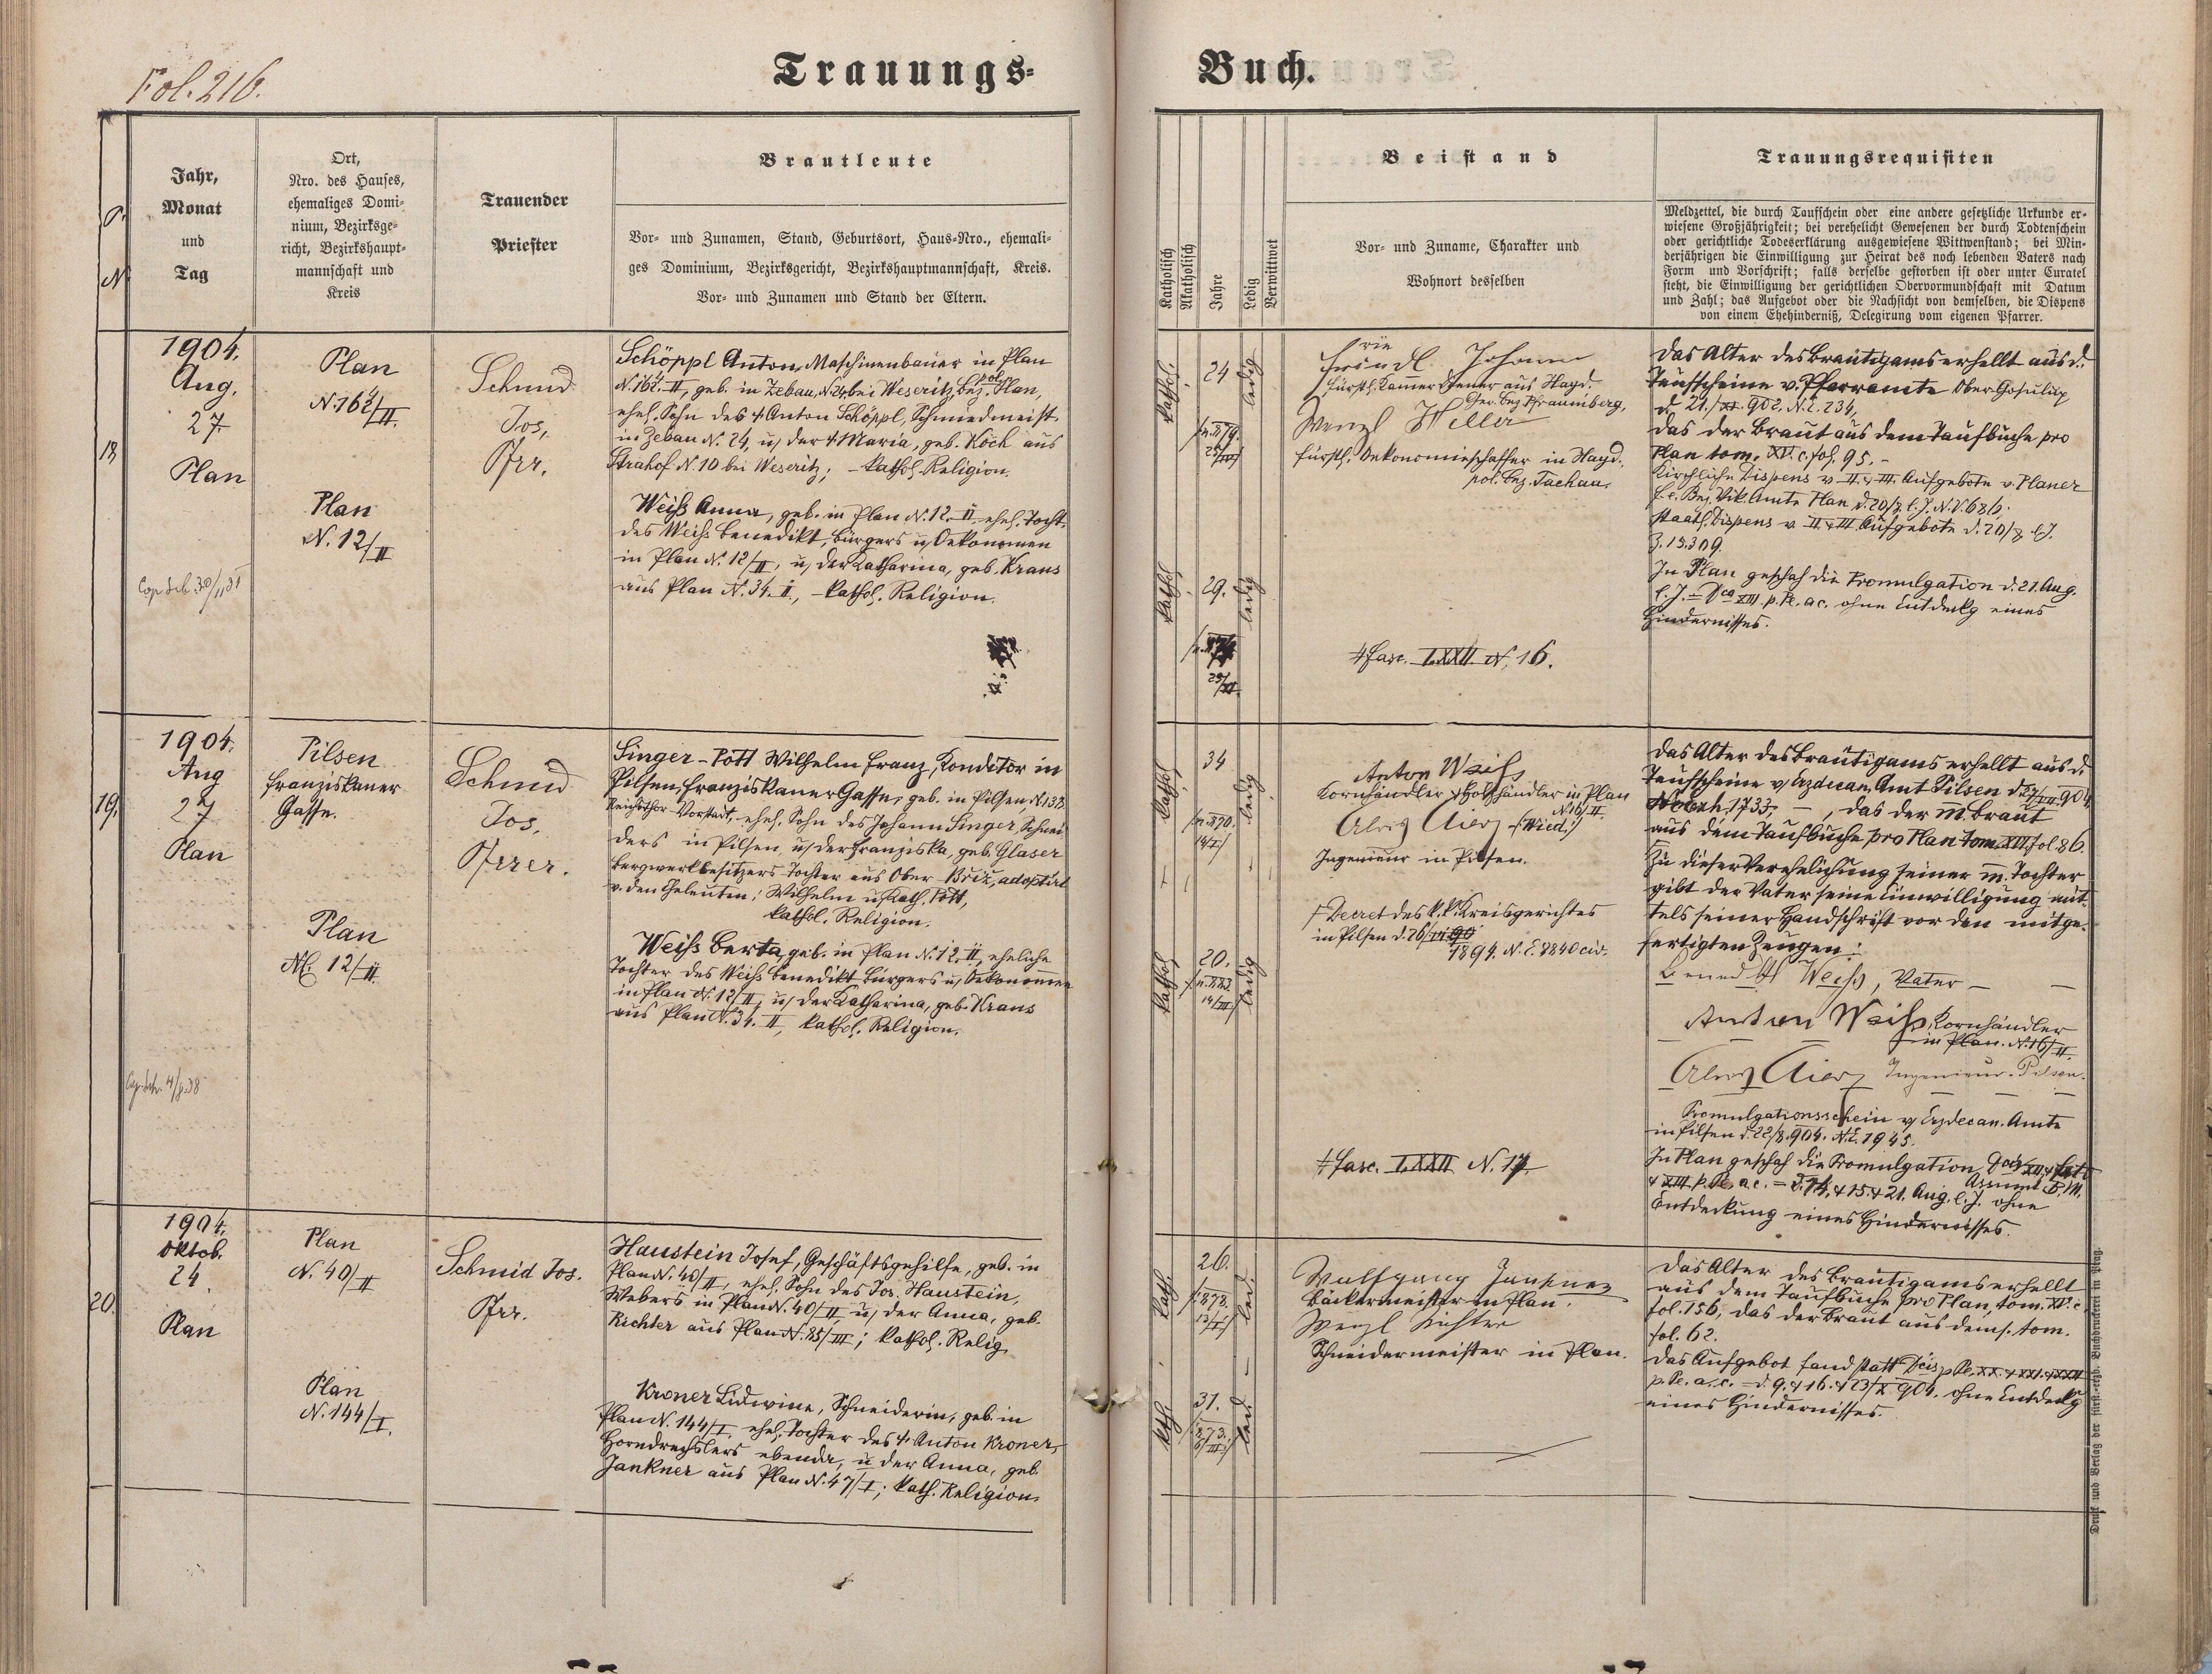 Fol. 216.
Trauungs=
Buch.
P.
N.
Jahr,
Monat
und
Tag
Ort,
Nro. des Hauses,
ehemaliges Domi-
nium, Bezirksge-
richt, Bezirkshaupt-
mannschaft und
Kreis
Trauender
Priester
Brautleute
Vor- und Zunamen, Stand, Geburtsort, Haus-Nro., ehemali-
ges Dominium, Bezirksgericht, Bezirkshauptmannschaft, Kreis.
Vor- und Zunamen und Stand der Eltern.
Katholisch
Akatholisch
Jahre
Ledig
Verwittwet
Beistand
Vor- und Zuname, Charakter und
Wohnort desselben
Trauungsrequisiten
Meldzettel, die durch Taufschein oder eine andere gesetzliche Urkunde er-
wiesene Großjährigkeit; bei verehelicht Gewesenen der durch Todtenschein
oder gerichtliche Todeserklärung ausgewiesene Wittwenstand; bei Min-
derjährigen die Einwilligung zur Heirat des noch lebenden Vaters nach
Form und Vorschrift; falls derselbe gestorben ist oder unter Curatel
steht, die Einwilligung der gerichtlichen Obervormundschaft mit Datum
und Zahl; das Aufgebot oder die Nachsicht von demselben, die Dispens
von einem Ehehinderniß, Delegirung vom eigenen Pfarrer.
18.
1904.
Aug.
27.
Plan
Plan
Plan
N. 12/II
Schmid
Jos.
Pfrr.
Schöppl Anton, Maschinenbauer in Plan
geb. in Zebau, N. 24, bei Weseritz, pol. Bez. Plan,
ehel. Sohn des † Anton Schöppl, Schmiedmeist.
in Zebau N. 24, u, der † Maria, geb. Köch aus
Strahof N. 10 bei Weseritz; – kathol. Religion.
Weiß Anna, geb. in Plan N. 12. II, ehel. Tocht.
des Weiß Benedikt, Bürgers u, Oekonomen
in Plan N. 12/II, u, der Katharina, geb. Kraus
aus Plan N. 34. II, – kathol. Religion.
kathol.
24
ledig
kathol.
29.
ledig
Johann
fürstl. Kammerdiener aus Hayd.
Ger. bez. Pfraumberg,
Wenzl Heller
fürstl. Oekonomieschaffer in Hayd.
pol. bez. Tachau.
‡ fasc. LXXII N. 16.
Das Alter des Bräutigams erhellt aus d.
Taufscheine v. Pfarramte Ober-Godrisch
das der Braut aus dem Taufbuche pro
Plan tom. XV. c. fol. 95. –
Kirchliche Dispens v. II. & III. Aufgebote v. Planer
Bez. Vik. Amte Plan
staatl. Dispens v II & III Aufgebote
Z. 15.309.
In Plan geschah die Promulgation d. 21. Aug.
l. J. = Dca XIII p. Pe. a c. ohne Entdeckg eines
Hindernisses.
19.
1904.
Aug
27
Plan
Pilsen
Franziskaner
Gasse.
Plan
N. 12/II
Schmid
Jos.
Pfrrer.
Singer-Pött Wilhelm Franz, Konditor in
Pilsen, Franziskaner Gasse, geb. in Pilsen N. 138
Reichsthor-Vorstadt, ehel. Sohn des Johann Singer, Schnei-
ders in Pilsen, u, der Franziska, geb. Glaser
Bergwerkbesitzers-Tochter aus Ober-Bříz, adoptirt
v. den Eheleuten: Wilhelm u, Kath. Pött,
kathol. Religion.
Weiß Berta, geb. in Plan N. 12. II, eheliche
Tochter des Weiß Benedikt, Bürgers u, Oekonomen
in Plan N. 12/II, u, der Katharina, geb. Kraus
aus Plan N. 34. II, kathol. Religion.
kathol.
34
ledig
kathol.
20.
ledig
Anton Weiß
Kornhändler & Holzhändler in Plan
N. 16/II.
Ingenieur in Pilsen.
† Decret des k. k. Kreisgerichtes
in Pilsen
‡ fasc. LXXII N. 17
Das Alter des Bräutigams erhellt aus d.
Taufscheine v, Erzdecan. Amt Pilsen
das der m. Braut
aus dem Taufbuche pro Plan tom. XVI, fol. 86.
Zu dieser Verehelichung seiner m. Tochter
gibt der Vater seine Einwilligung mit-
tels seiner Handschrift vor den mitge-
fertigten Zeugen:
Benedikt Weiß, Vater –
Anton Weiß, Kornhändler
in Plan. N. 16/II.
Ingenieur. Pilsen.
Promulgationsschein v, Erzdecan. Amte
in Pilsen d. 22/8. 904. N.E. 1945.
In Plan geschah die Promulgation
Assumt. B. M.
& XIII p. Pe. a c. = d. 14, & 15. & 21. Aug. l. J. ohne
Entdeckung eines Hindernisses.
20.
1904.
Oktob.
24.
Plan
Plan
N. 40/II
Plan
N. 144/I.
Schmid Jos.
Pfrr.
Haustein Josef, Geschäftsgehilfe, geb. in
Plan N. 40/II, ehel. Sohn des Jos. Haustein,
Webers in Plan N. 40/II, u, der Anna, geb.
Richter aus Plan N. 85/III; kathol. Relig.
Kroner Lidwine, Schneiderin, geb. in
Plan N. 144/I, ehel. Tochter des † Anton Kroner,
Horndrechslers ebenda, u der Anna, geb.
Jankner aus Plan N. 47/I; kath. Religion.
kath.
26.
led.
kth.
31.
led
Wolfgang Jankner
Bäckermeister in Plan.
Wenzl Richter
Schneidermeister in Plan.
Das Alter des Bräutigams erhellt
aus dem Taufbuche pro Plan, tom. XV. c
fol. 156, das der Braut aus dems. tom.
fol. 62.
Das Aufgebot fand statt
p. Pe. a. c. = d. 9. & 16. & 23/X 904. ohne Entdeckg
eines Hindernisses.
Druck und Verlag der fürst.-erzb. Buchdruckerei in Prag.